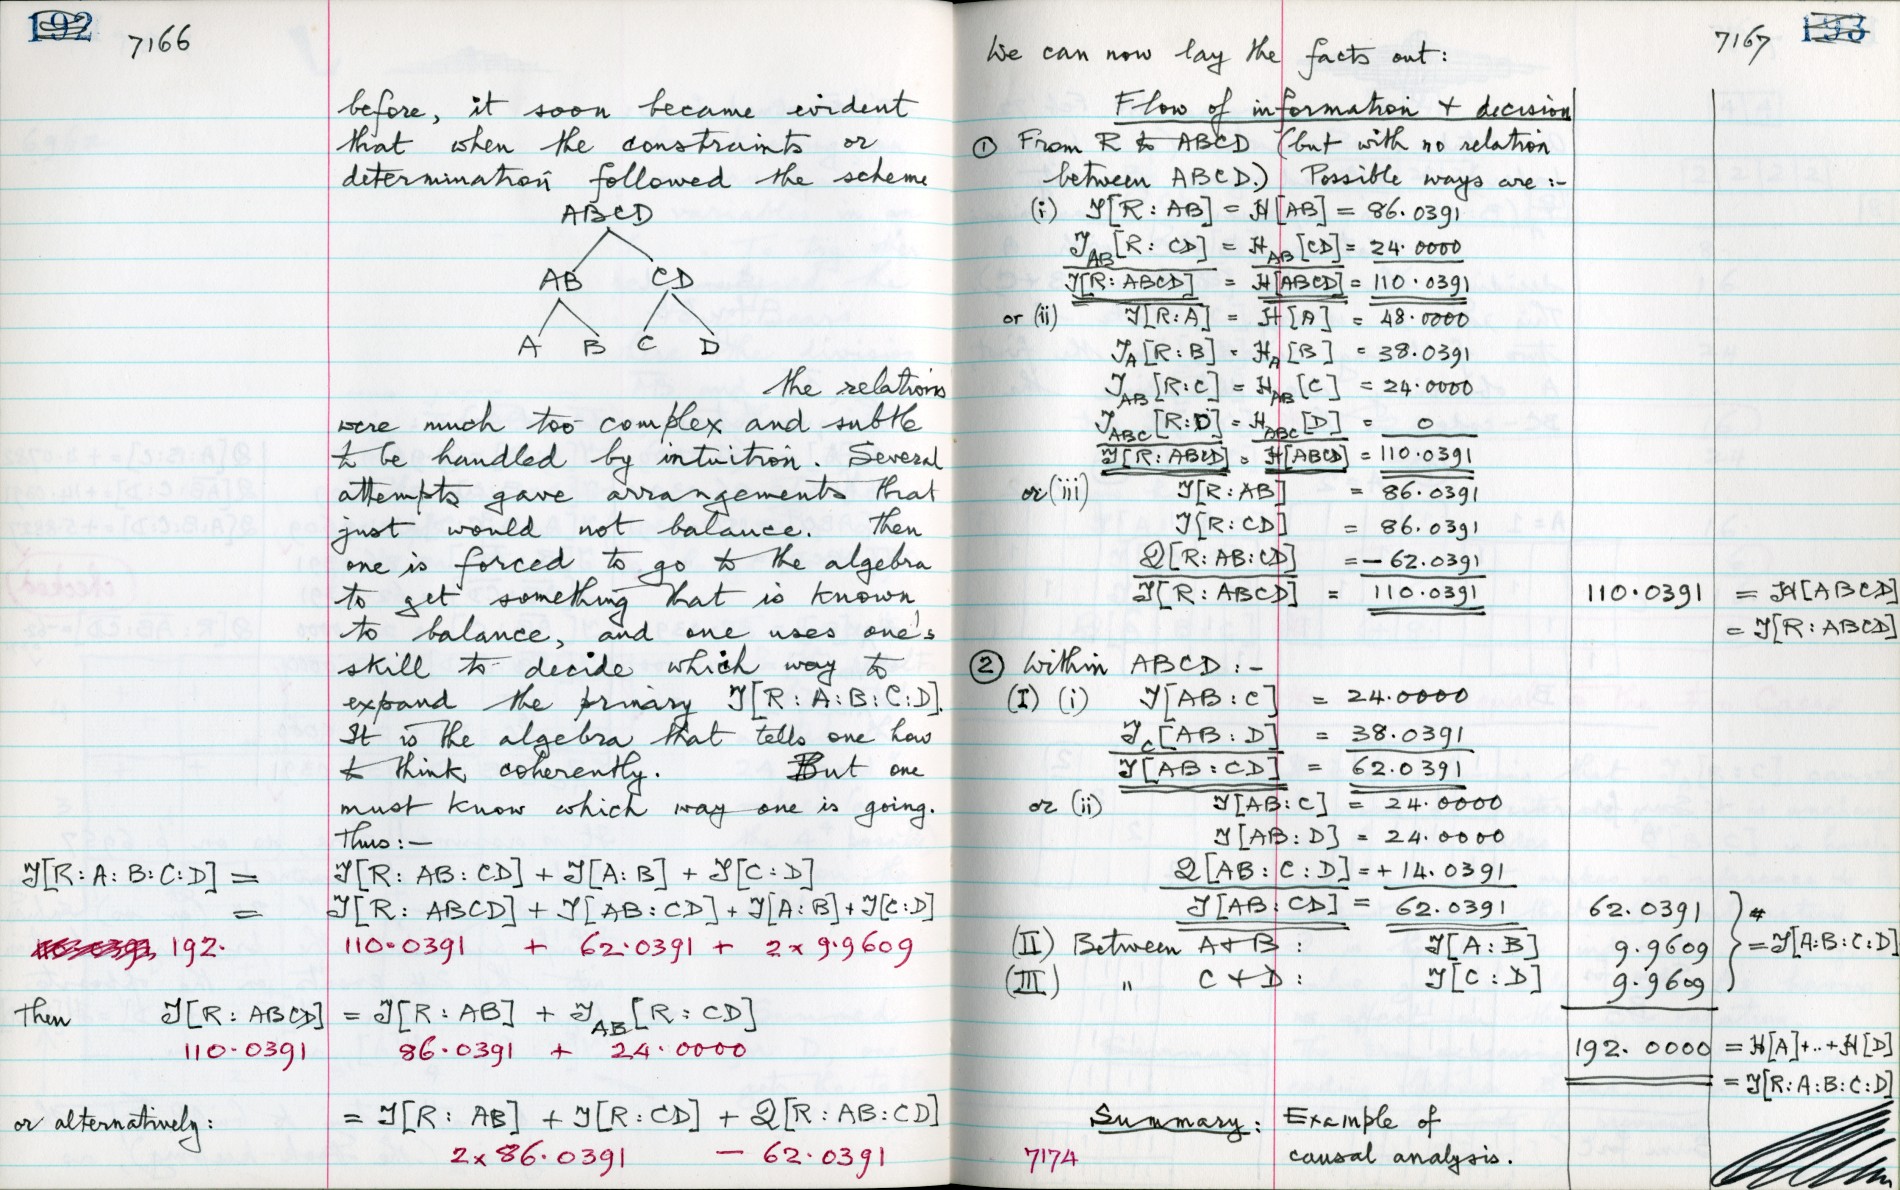 192
7166
before, it soon became evident
that when the constraints or
determination followed the scheme
ABCD
AB CD
A B C D
the relations
were much too complex and subtle
to be handled by intuition. Several
attempts gave arrangements that
just would not balance. Then
one is forced to go to the algebra
to get something that is known
to balance, and one uses one's
skill to decide which way to
expand the primary T[R:A:B:C:D].
It is the algebra that tells one how
to think coherently. But one
must know which way one is going.
Thus:—
T[R:A:B:C:D] = T[R:AB:CD] + T[A:B] + T[C:D]
= T[R:ABCD] + T[AB:CD] + T[A:B] + T[C:D]
192. 110.0391 + 62.0391 + 2x9.9609
Then T[R:ABCD] = T[R:AB] + T_AB[R:CD]
110.0391 86.0391 + 24.0000
or alternatively: = T[R:AB] + T[R:CD] + Q[R:AB:CD]
2x86.0391 - 62.0391
7167 193
We can now lay the facts out:
Flow of information + decision
① From R to ABCD (but with no relation
between ABCD.) Possible ways are:-
(i) T[R:AB] = H[AB] = 86.0391
T_AB[R:CD] = H_AB[CD] = 24.0000
T[R:ABCD] = H[ABCD] = 110.0391
or (ii) T[R:A] = H[A] = 48.0000
T_A[R:B] = H_A[B] = 38.0391
T_AB[R:C] = H_AB[C] = 24.0000
T_ABC[R:D] = H_ABC[D] = 0
T[R:ABCD] = H[ABCD] = 110.0391
or (iii) T[R:AB] = 86.0391
T[R:CD] = 86.0391
Q[R:AB:CD] = -62.0391
T[R:ABCD] = 110.0391 110.0391 = H[ABCD]
= T[R:ABCD]
② Within ABCD:-
(I) (i) T[AB:C] = 24.0000
T_C[AB:D] = 38.0391
T[AB:CD] = 62.0391
or (ii) T[AB:C] = 24.0000
T[AB:D] = 24.0000
Q[AB:C:D] = +14.0391
T[AB:CD] = 62.0391 62.0391 } *
(II) Between A+B: T[A:B] 9.9609 = T[A:B:C:D]
(III) " C+D: T[C:D] 9.9609
192.0000 = H[A]+..+H[D]
= T[R:A:B:C:D]
Summary: Example of
7174 causal analysis.